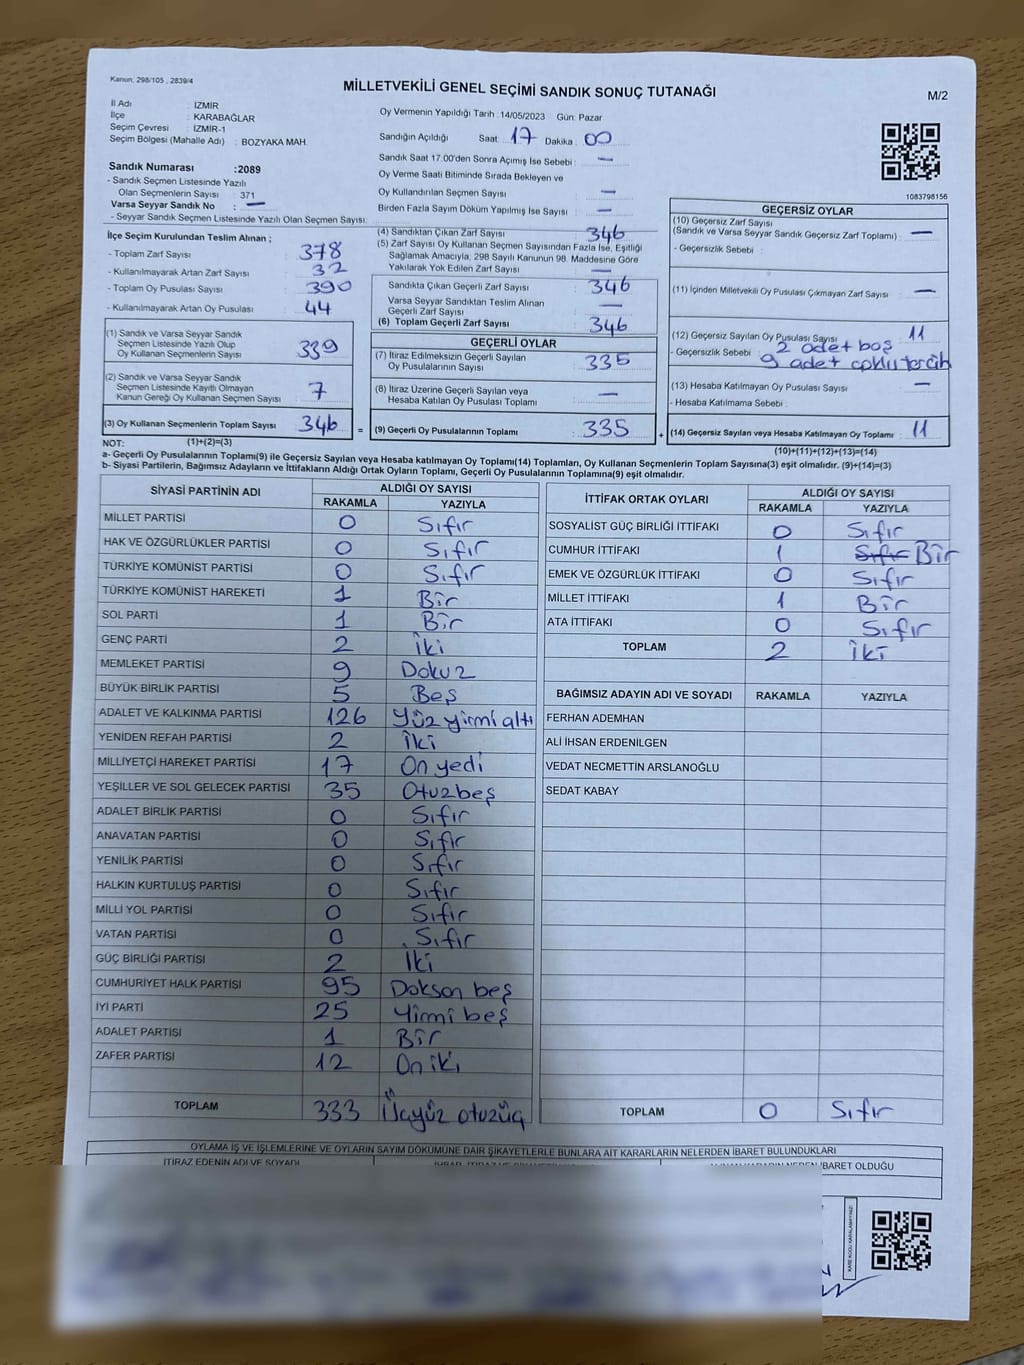 Kanun: 298/105 , 2839/4
MİLLETVEKİLİ GENEL SEÇİMİ SANDIK SONUÇ TUTANAĞI
M/2
İl Adı : İZMİR
İlçe : KARABAĞLAR
Seçim Çevresi : İZMİR-1
Seçim Bölgesi (Mahalle Adı) : BOZYAKA MAH.
Oy Vermenin Yapıldığı Tarih :14/05/2023 Gün: Pazar
Sandığın Açıldığı Saat: 17 Dakika: 00
Sandık Saat 17.00'den Sonra Açımış İse Sebebi : —
Oy Verme Saati Bitiminde Sırada Bekleyen ve
Oy Kullandırılan Seçmen Sayısı : —
Birden Fazla Sayım Döküm Yapılmış İse Sayısı : —
Sandık Numarası :2089
- Sandık Seçmen Listesinde Yazılı
Olan Seçmenlerin Sayısı : 371
Varsa Seyyar Sandık No : —
- Seyyar Sandık Seçmen Listesinde Yazılı Olan Seçmen Sayısı:
1083798156
İlçe Seçim Kurulundan Teslim Alınan ;
- Toplam Zarf Sayısı : 378
- Kullanılmayarak Artan Zarf Sayısı : 32
- Toplam Oy Pusulası Sayısı : 390
- Kullanılmayarak Artan Oy Pusulası : 44
(1) Sandık ve Varsa Seyyar Sandık
Seçmen Listesinde Yazılı Olup
Oy Kullanan Seçmenlerin Sayısı : 339
(2) Sandık ve Varsa Seyyar Sandık
Seçmen Listesinde Kayıtlı Olmayan
Kanun Gereği Oy Kullanan Seçmen Sayısı : 7
(3) Oy Kullanan Seçmenlerin Toplam Sayısı : 346 =
(4) Sandıktan Çıkan Zarf Sayısı : 346
(5) Zarf Sayısı Oy Kullanan Seçmen Sayısından Fazla İse, Eşitliği
Sağlamak Amacıyla, 298 Sayılı Kanunun 98. Maddesine Göre
Yakılarak Yok Edilen Zarf Sayısı : —
Sandıkta Çıkan Geçerli Zarf Sayısı : 346
Varsa Seyyar Sandıktan Teslim Alınan
Geçerli Zarf Sayısı : —
(6) Toplam Geçerli Zarf Sayısı : 346
GEÇERLİ OYLAR
(7) İtiraz Edilmeksizin Geçerli Sayılan
Oy Pusulalarının Sayısı : 335
(8) İtiraz Üzerine Geçerli Sayılan veya
Hesaba Katılan Oy Pusulası Toplamı : —
(9) Geçerli Oy Pusulalarının Toplamı : 335 +
GEÇERSİZ OYLAR
(10) Geçersiz Zarf Sayısı
(Sandık ve Varsa Seyyar Sandık Geçersiz Zarf Toplamı) : —
- Geçersizlik Sebebi :
(11) İçinden Milletvekili Oy Pusulası Çıkmayan Zarf Sayısı : —
(12) Geçersiz Sayılan Oy Pusulası Sayısı : 11
- Geçersizlik Sebebi : 2 adet boş
9 adet çoklu tercih
(13) Hesaba Katılmayan Oy Pusulası Sayısı : —
- Hesaba Katılmama Sebebi :
(14) Geçersiz Sayılan veya Hesaba Katılmayan Oy Toplamı : 11
NOT: (1)+(2)=(3) (10)+(11)+(12)+(13)=(14)
a- Geçerli Oy Pusulalarının Toplamı(9) ile Geçersiz Sayılan veya Hesaba katılmayan Oy Toplamı(14) Toplamları, Oy Kullanan Seçmenlerin Toplam Sayısına(3) eşit olmalıdır. (9)+(14)=(3)
b- Siyasi Partilerin, Bağımsız Adayların ve İttifakların Aldığı Ortak Oyların Toplamı, Geçerli Oy Pusulalarının Toplamına(9) eşit olmalıdır.
SİYASİ PARTİNİN ADI ALDIĞI OY SAYISI
RAKAMLA YAZIYLA
MİLLET PARTİSİ 0 Sıfır
HAK VE ÖZGÜRLÜKLER PARTİSİ 0 Sıfır
TÜRKİYE KOMÜNİST PARTİSİ 0 Sıfır
TÜRKİYE KOMÜNİST HAREKETİ 1 Bir
SOL PARTİ 1 Bir
GENÇ PARTİ 2 İki
MEMLEKET PARTİSİ 9 Dokuz
BÜYÜK BİRLİK PARTİSİ 5 Beş
ADALET VE KALKINMA PARTİSİ 126 Yüz yirmi altı
YENİDEN REFAH PARTİSİ 2 İki
MİLLİYETÇİ HAREKET PARTİSİ 17 On yedi
YEŞİLLER VE SOL GELECEK PARTİSİ 35 Otuzbeş
ADALET BİRLİK PARTİSİ 0 Sıfır
ANAVATAN PARTİSİ 0 Sıfır
YENİLİK PARTİSİ 0 Sıfır
HALKIN KURTULUŞ PARTİSİ 0 Sıfır
MİLLİ YOL PARTİSİ 0 Sıfır
VATAN PARTİSİ 0 Sıfır
GÜÇ BİRLİĞİ PARTİSİ 2 İki
CUMHURİYET HALK PARTİSİ 95 Doksan beş
İYİ PARTİ 25 Yirmi beş
ADALET PARTİSİ 1 Bir
ZAFER PARTİSİ 12 On iki
TOPLAM 333 Üçyüz otuzüç
İTTİFAK ORTAK OYLARI ALDIĞI OY SAYISI
RAKAMLA YAZIYLA
SOSYALİST GÜÇ BİRLİĞİ İTTİFAKI 0 Sıfır
CUMHUR İTTİFAKI 1 Sıfır Bir
EMEK VE ÖZGÜRLÜK İTTİFAKI 0 Sıfır
MİLLET İTTİFAKI 1 Bir
ATA İTTİFAKI 0 Sıfır
TOPLAM 2 İki
BAĞIMSIZ ADAYIN ADI VE SOYADI RAKAMLA YAZIYLA
FERHAN ADEMHAN
ALİ İHSAN ERDENİLGEN
VEDAT NECMETTİN ARSLANOĞLU
SEDAT KABAY
TOPLAM 0 Sıfır
OYLAMA İŞ VE İŞLEMLERİNE VE OYLARIN SAYIM DÖKÜMÜNE DAİR ŞİKAYETLERLE BUNLARA AİT KARARLARIN NELERDEN İBARET BULUNDUKLARI
İTİRAZ EDENİN ADI VE SOYADI
İBARET OLDUĞU